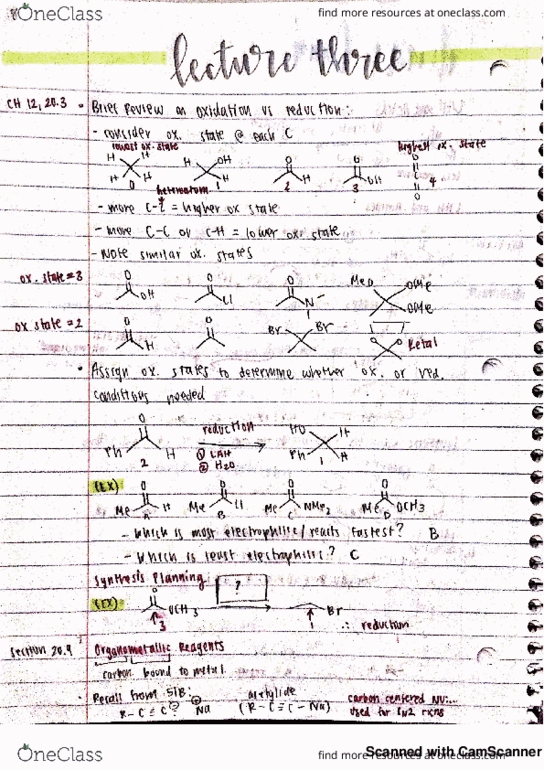 OneClass
find more resources at oneclass.com
lecture three
CH 12, 20.3 • Brief Review on oxidation vs reduction:
- consider ox. state @ each C
lowest ox. state
highest ox. state
H H H H
0
H OH H
1
O H
2
O OH
3
O C O
4
heteroatom
- more C-Z = higher ox state
- more C-C or C-H = lower ox. state
- Note similar ox. states
ox. state = 3
O OH
O Cl
O N
MeO OMe OMe
ox state = 2
O H
O
Br Br
O O Ketal
• Assign ox. states to determine whether ox. or red.
conditions needed
O Ph H
2
reduction
① LAH
② H2O
HO H Ph H
1
(EX)
O Me H
A
O Me Cl
B
O Me NMe2
C
O Me OCH3
D
- Which is most electrophilic/reacts fastest? B
- Which is least electrophilic? C
Synthesis Planning
(EX)
O OCH3
3
?
Br
1
∴ reduction
Section 20.9
Organometallic Reagents
carbon bound to metal
• Recall from 51B:
R-C≡C Na
acetylide
(R-C≡C-Na)
carbon centered Nu:...
used for SN2 rxns
OneClass
find more resources at oneclass.com
Scanned with CamScanner